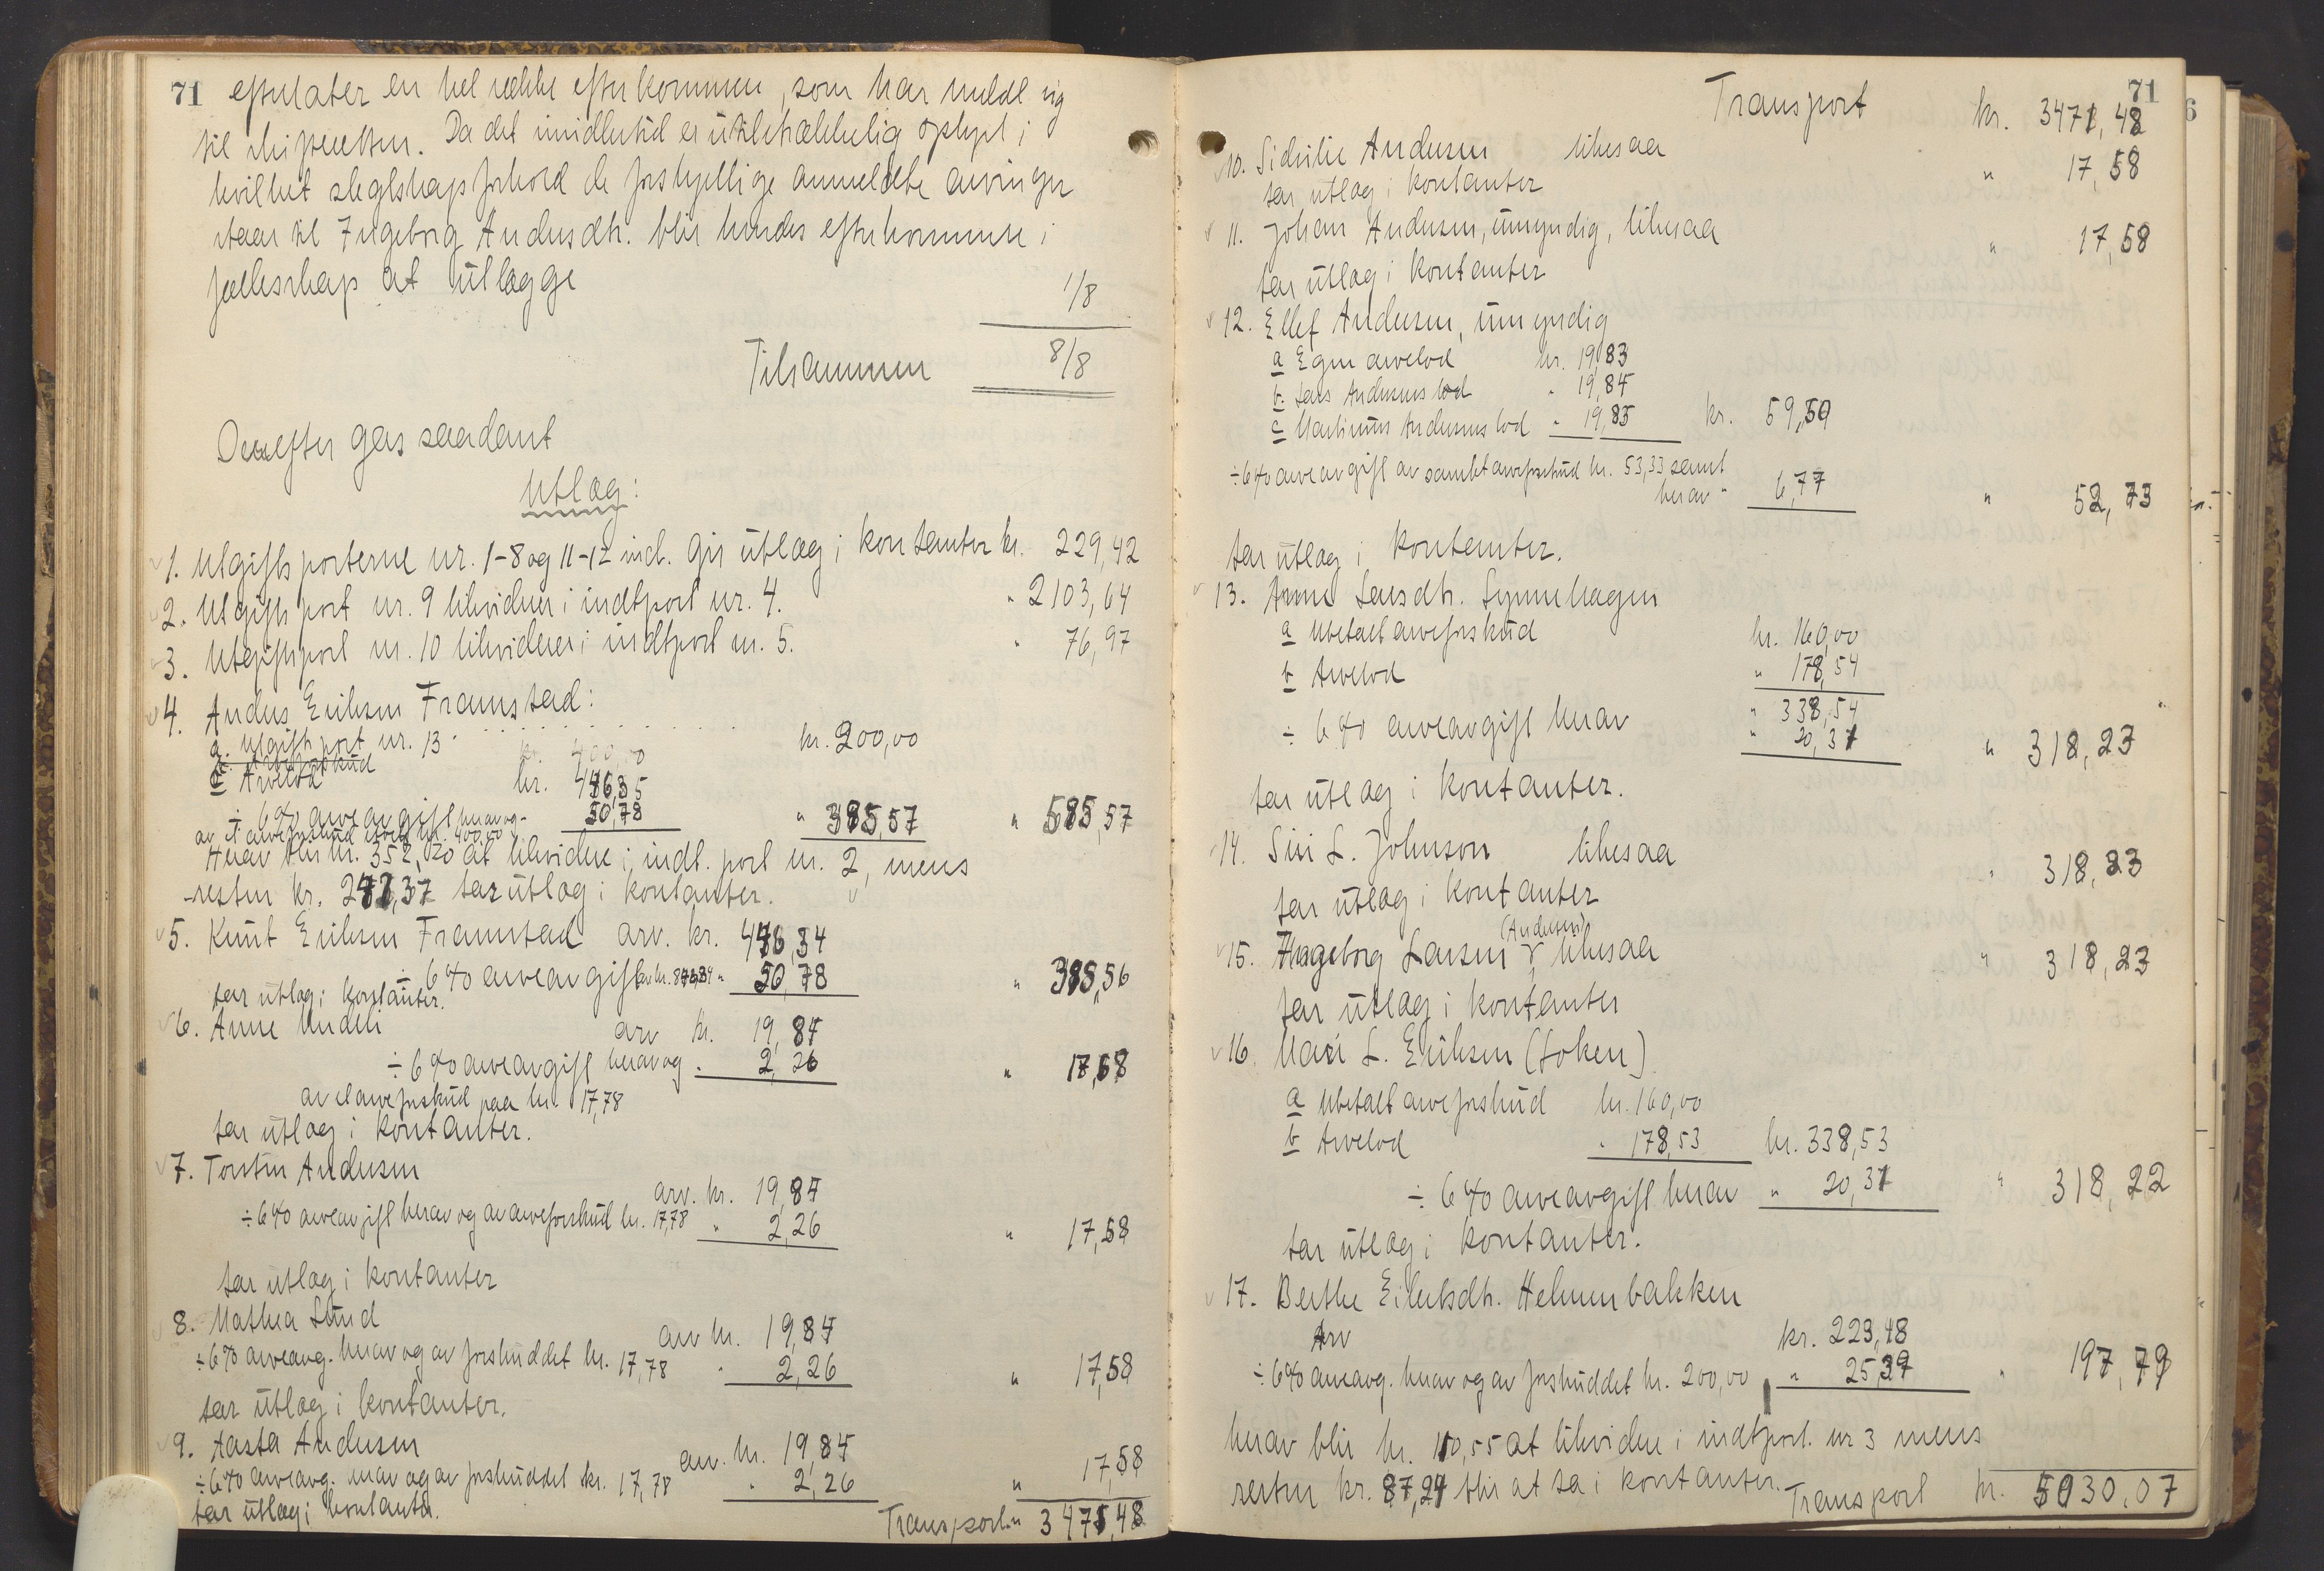 71 efterlater en hel række efterkommere, som har meldt sig
til skifteretten. Da det imidlertid er utilstrækkelig oplyst i
hvilket slegtskapsforhold de forskjellige anmeldte arvinger
staar til Ingeborg Andersdtr. blir hendes efterkommere i
fællesskap at utlægge 1/8
Tilsammen 8/8
Derefter gjøres saadant
Utlæg:
1. Utgiftsposterne nr. 1-8 og 11-12 incl. gis utlæg i kontanter kr. 229,42
2. Utgiftspost nr. 9 likvideres i indtpost nr. 4. " 2103,64
3. Utgiftspost nr. 10 likvideres i indtpost nr. 5. " 76,97
4. Anders Eriksen Framstad:
a. Utgiftspost nr. 13 kr. 200,00
kr. 400,00
Arvelod kr. 446,35
÷ 6 % arveavgift herav og 50,78 " 385,57 " 585,57
av et arveforskud stort kr. 400,00
Herav blir kr. 352,20 at likvidere i indt. post nr. 2, mens
resten kr. 247,37 tar utlæg i kontanter.
5. Knut Eriksen Framstad arv. kr. 446,34
÷ 6 % arveavgift 50,78 " 385,56
tar utlæg i kontanter.
6. Anne Undeli arv kr. 19,84
÷ 6 % arveavgift herav og " 2,26 " 17,58
av et arveforskud paa kr. 17,78
tar utlæg i kontanter.
7. Torsten Andersen
arv. kr. 19,84
÷ 6 % arveavgift herav og av arveforskud kr. 17,78 " 2,26 " 17,58
tar utlæg i kontanter
8. Mathea Lund
arv kr. 19,84
÷ 6 % arveavg. herav og av forskuddet kr. 17,78 " 2,26 " 17,58
tar utlæg i kontanter.
9. Aasta Andersen
arv. kr. 19,84
÷ 6 % arveavg. herav og av forskuddet kr. 17,78 " 2,26 " 17,58
tar utlæg i kontanter.
Transport " 3471,48
71
6
Transport kr. 3471,48
10. Sidsilie Andersen likesaa " 17,58
tar utlæg i kontanter
11. Johan Andersen, umyndig, likesaa " 17,58
tar utlæg i kontanter
12. Ellef Andersen, umyndig
a Egen arvelod kr. 19,83
b. Lars Andersens lod " 19,84
c Martinus Andersens lod " 19,83 kr. 59,50
÷ 6 % arveavgift av samlet arveforskud kr. 53,33 samt
herav " 6,77 " 52,73
tar utlæg i kontanter.
13. Anne Larsdtr. Synnehagen
a Ubetalt arveforskud kr. 160,00
b Arvelod " 178,54
" 338,54
÷ 6 % arveavgift herav " 20,31 " 318,23
tar utlæg i kontanter.
14. Siri L. Johnson likesaa " 318,23
tar utlæg i kontanter
15. Ingeborg Larsen (Andersen) likesaa " 318,23
tar utlæg i kontanter
16. Mari L. Eriksen (Løken)
a Ubetalt arveforskud kr. 160,00
b Arvelod " 178,53 kr. 338,53
÷ 6 % arveavgift herav " 20,31 " 318,22
tar utlæg i kontanter.
17. Berthe Eilertsdtr. Helmenbakken
Arv kr. 223,48
÷ 6 % arveavg. herav og av forskuddet kr. 200,00 " " 197,79
herav blir kr. 110,55 at likvidere i indtpost. nr 3 mens
resten kr. 87,24 blir at ta i kontanter.
Transport kr. 5030,07